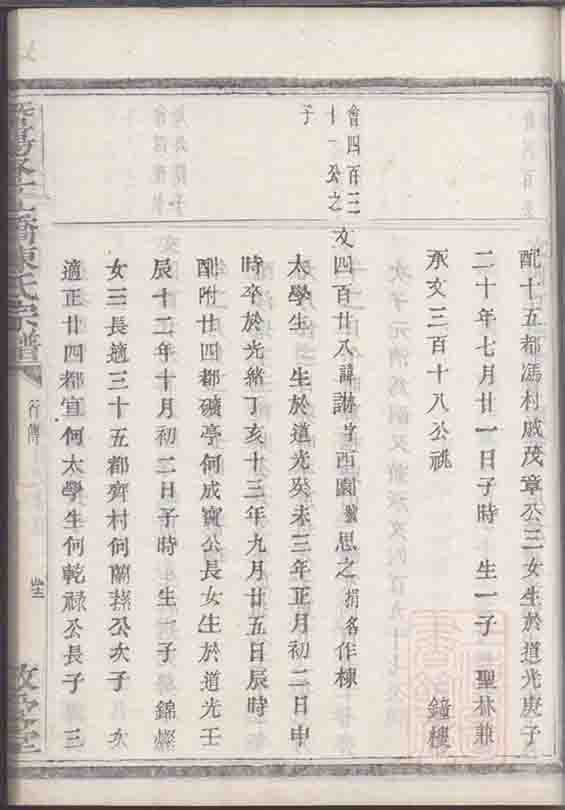 配十五都馮村戚茂章公三女生於道光庚子
二十年七月廿一日子時　生一子　聖林兼
承文三百十八公祧　鐘樓
會四百三
十一公之
子
文四百廿八諱諃字西園號思之捐名作棟
太學生　生於道光癸未三年正月初二日申
時卒於光緒丁亥十三年九月廿五日辰時
配附廿四都礦亭何成寶公長女生於道光壬
辰十二年十月初二日子時　生一子　錦燦
女三長適三十五都齊村何蘭蓀公次子　次
適正廿四都宜何太學生何乾祿公長子　三
橋陳氏宗譜
行傳